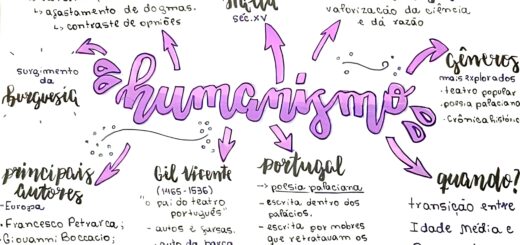 ↳ afastamento de dogmas.
↳ contraste de opniões
séc. XV
valorização da ciência
e da razão
surgimento
da
burguesia
humanismo
gêneros
mais explorados
• teatro popular
• poesia palaciana
• Crônica históric
principais
autores
- Europa
• Francesco Petrarca;
• Giovanni Boccacio;
Gil Vicente
(1465-1536)
"o pai do teatro
português"
- autos e farsas.
- auto da barca
portugal
→ poesia palaciana
- escrita dentro dos
palácios.
- escrita por nobres
que retratavam os
quando?
transição entre
Idade Média e